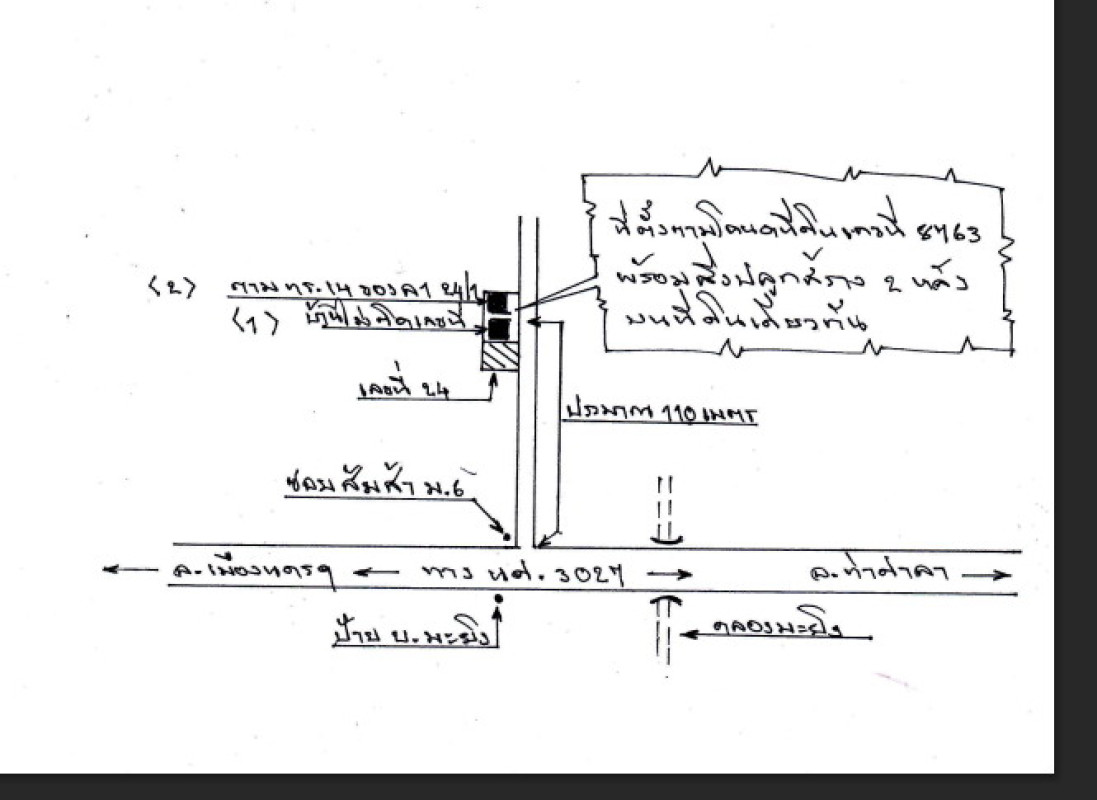 ที่ตั้งตามโฉนดที่ดินเลขที่ 8763
พร้อมสิ่งปลูกสร้าง 2 หลัง
บนที่ดินเดียวกัน
(2) ตาม ทร.14 ของ 24/1
(1) บ้านไม่ติดเลขที่
เลขที่ 24
ประมาณ 110 เมตร
ซอยส้มส้า ม.6
อ.เมืองนครฯ
ทาง นศ. 3027
อ.ท่าศาลา
ป้าย บ.มะยิง
คลองมะยิง